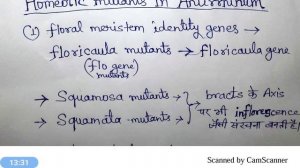 Homeotic mutants in Antirrhinum
(1) floral meristem identity genes →
floricaula mutants → floricaula gene
(flo gene)
mutants
→ Squamosa mutants →
→ Squamata mutants →
bracts के Axis
पर भी inflorescence
जैसी संरचना बनती है।
13:31
Scanned by CamScanner